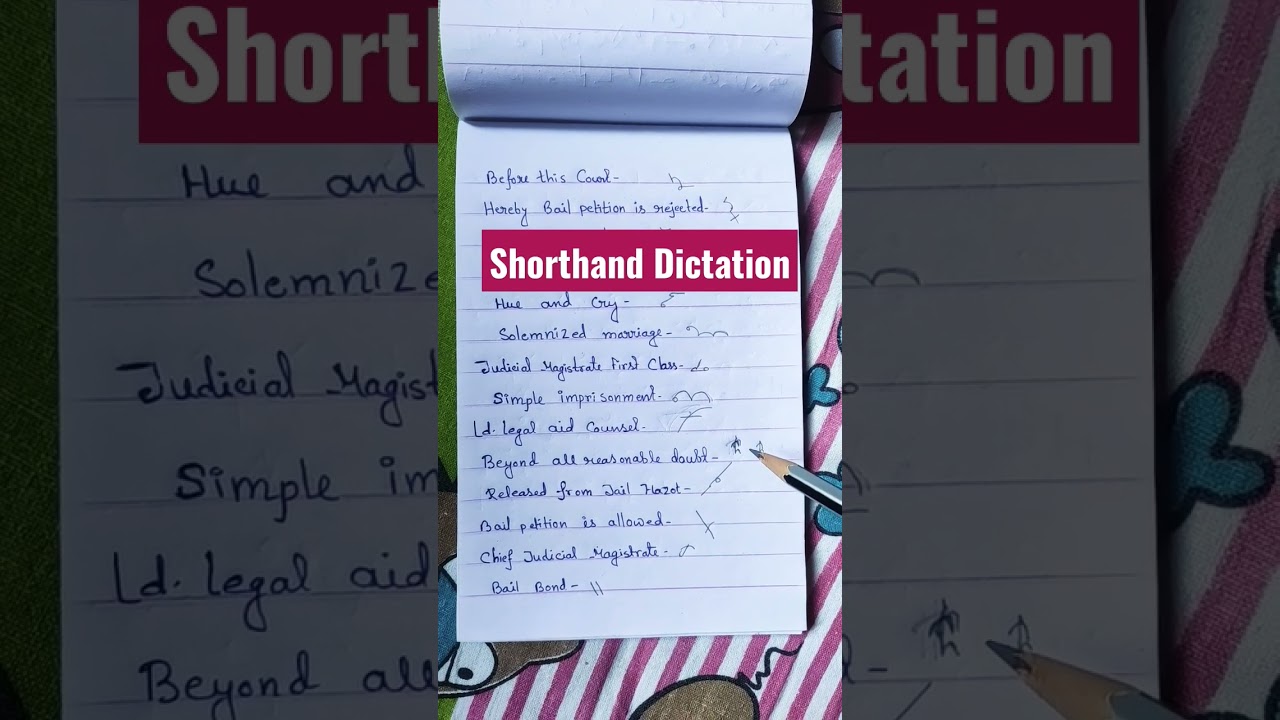 Shorthand Dictation
Before this Court-
Hereby Bail petition is rejected-
Hue and Cry-
Solemnized marriage-
Judicial Magistrate First Class-
Simple imprisonment-
Ld. legal aid Counsel-
Beyond all reasonable doubt-
Released from Jail Hazot-
Bail petition is allowed-
Chief Judicial Magistrate-
Bail Bond-